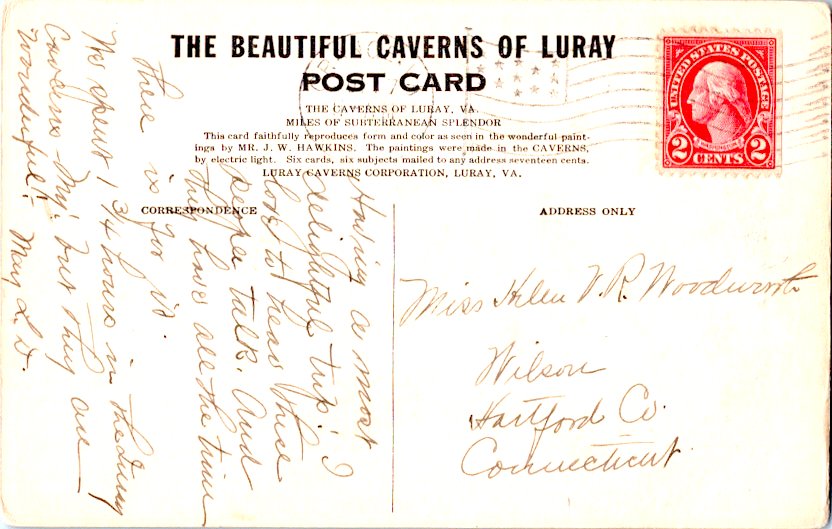 THE BEAUTIFUL CAVERNS OF LURAY
POST CARD
THE CAVERNS OF LURAY, VA.
MILES OF SUBTERRANEAN SPLENDOR
This card faithfully reproduces form and color as seen in the wonderful paint-
ings by MR. J. W. HAWKINS. The paintings were made in the CAVERNS,
by electric light. Six cards, six subjects mailed to any address seventeen cents.
LURAY CAVERNS CORPORATION, LURAY, VA.
UNITED STATES POSTAGE
WASHINGTON
2 CENTS 2
CORRESPONDENCE
ADDRESS ONLY
Having a most
delightful trip! I
love to hear these
people talk. And
they have all the time
there is for it.
We spent 1 3/4 hours in the
Caverns My! but they are
wonderful! May L. D.
Miss Helen V. R. Woodworth
Wilson
Hartford Co.
Connecticut